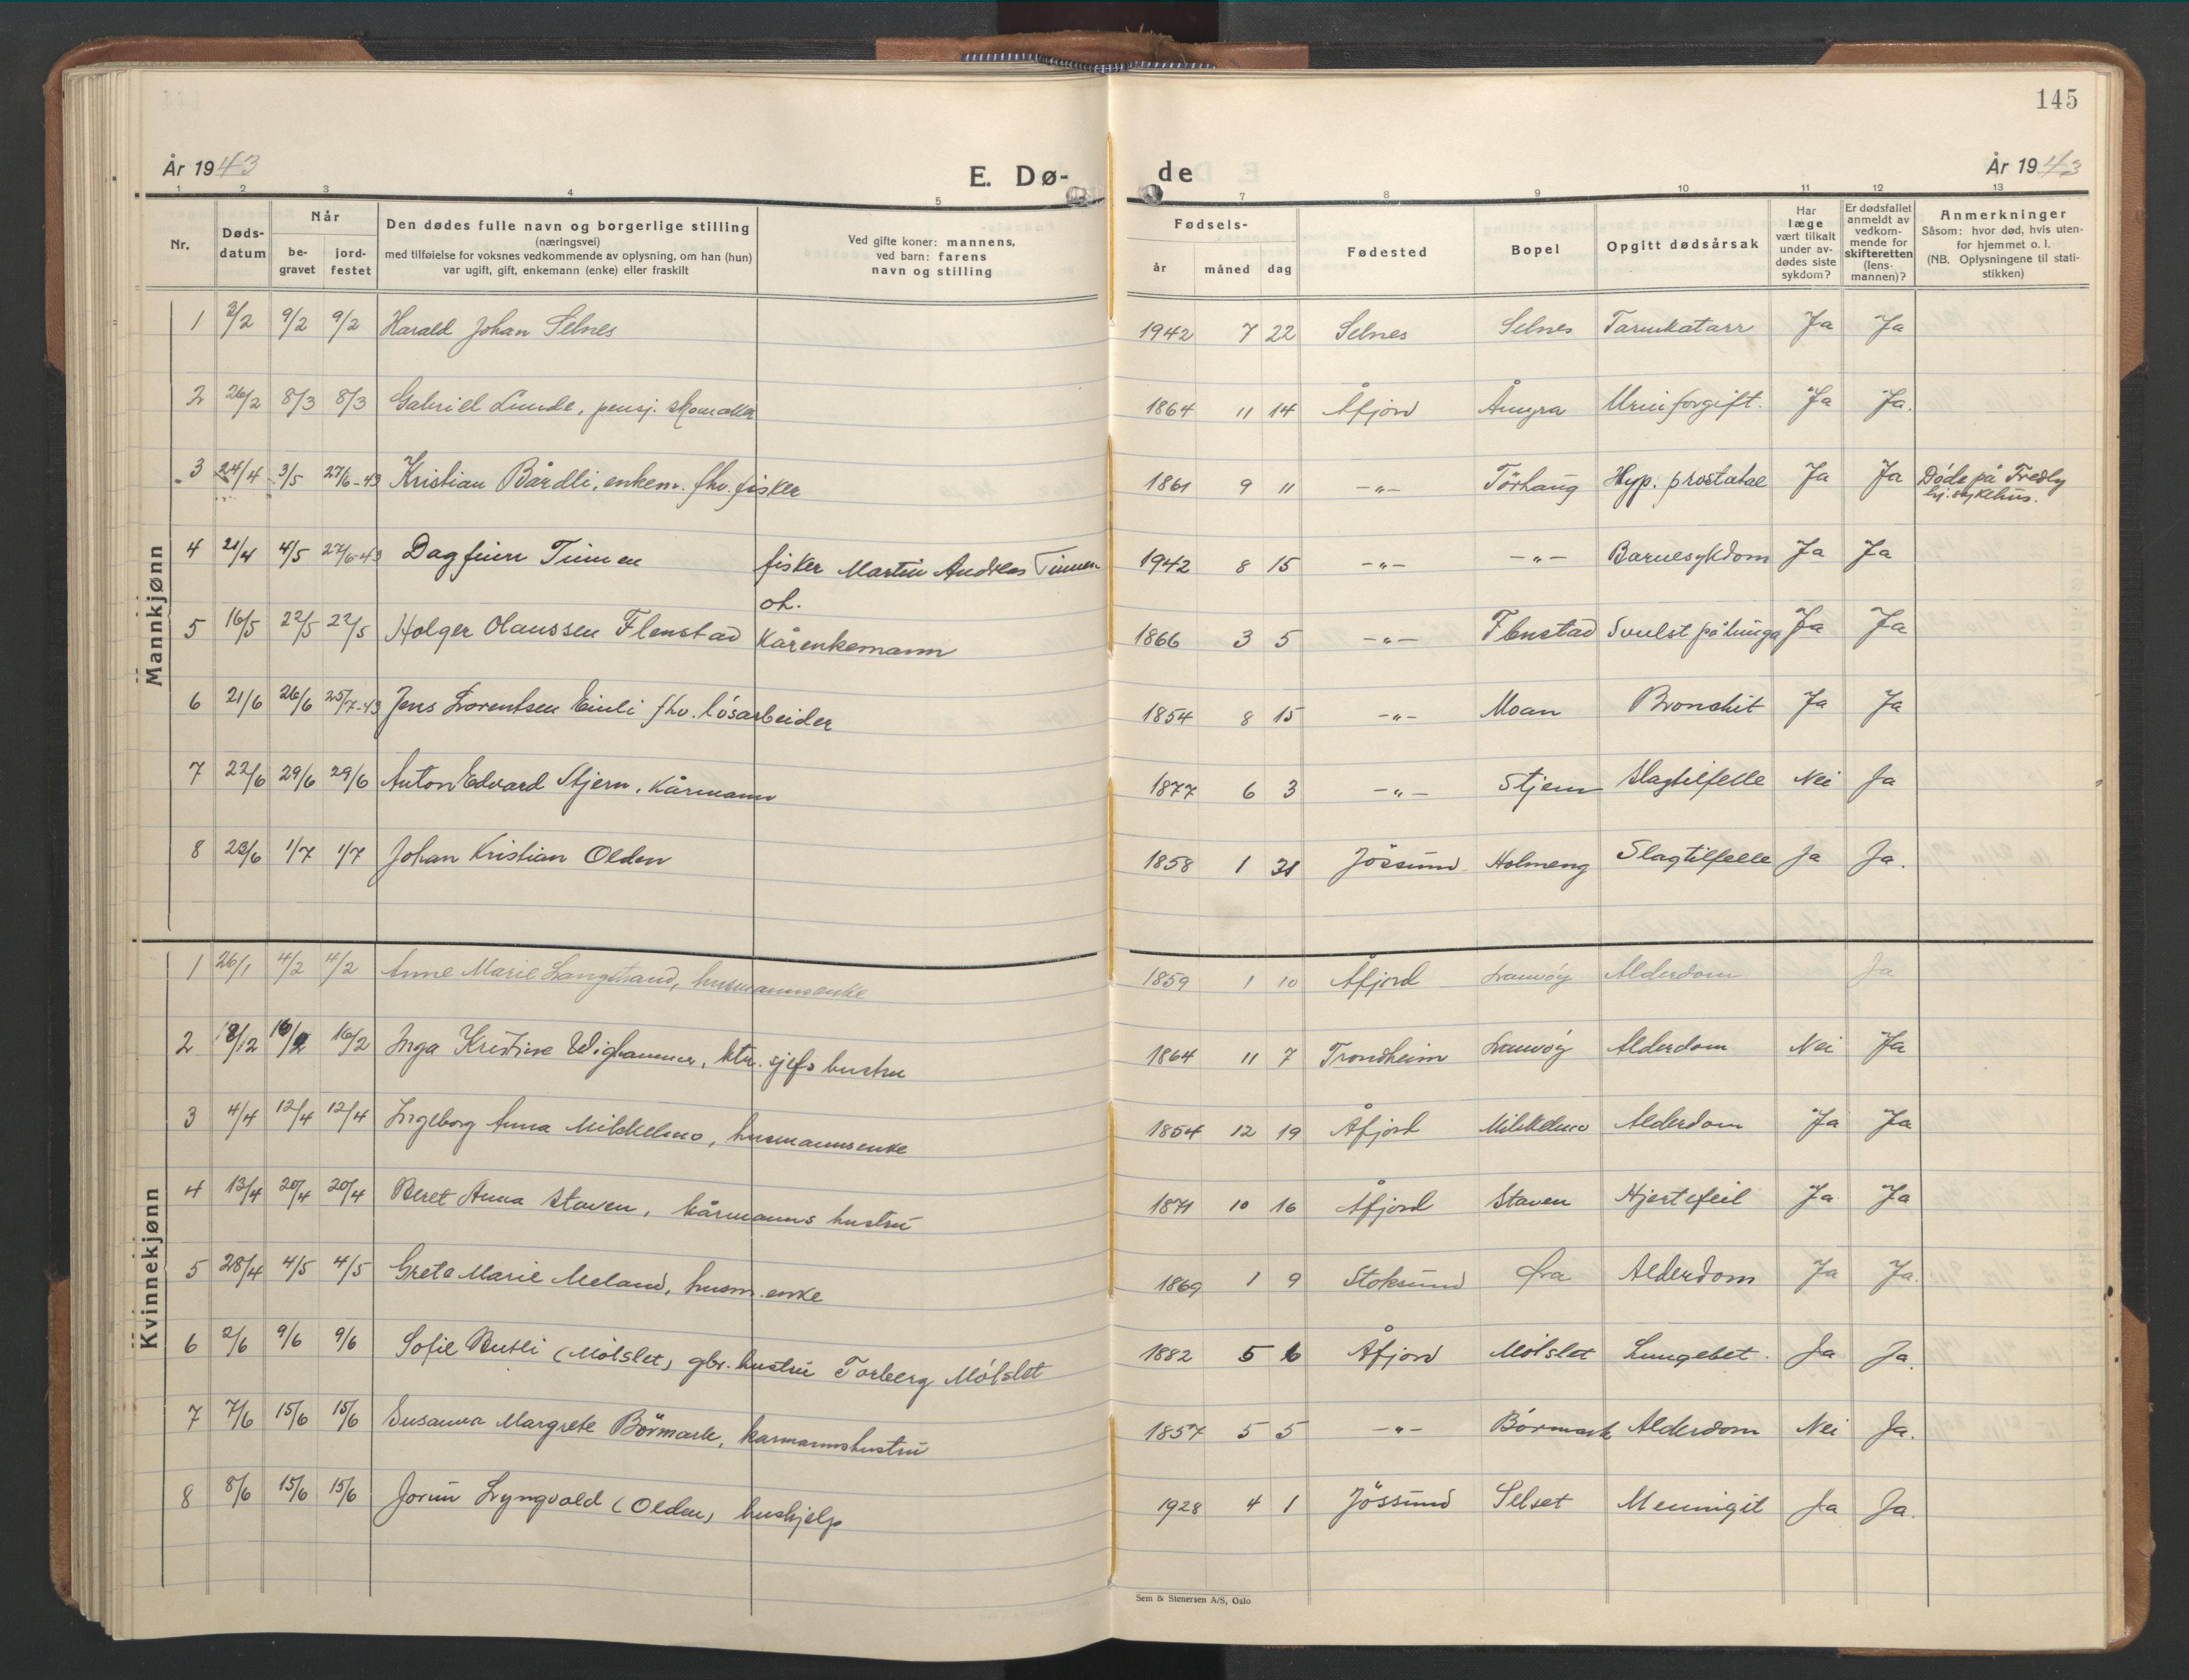 145
År 1943
E. Dø-
de
År 1943
1 2 3 4 5 7 8 9 10 11 12 13
Nr.
Døds-
datum
Når
be-
gravet
jord-
festet
Den dødes fulle navn og borgerlige stilling
(næringsvei)
med tilføielse for voksnes vedkommende av oplysning, om han (hun)
var ugift, gift, enkemann (enke) eller fraskilt
Ved gifte koner: mannens,
ved barn: farens
navn og stilling
Fødsels-
år måned dag
Fødested
Bopel
Opgitt dødsårsak
Har
læge
vært tilkalt
under av-
dødes siste
sykdom?
Er dødsfallet
anmeldt av
vedkom-
mende for
skifteretten
(lens-
mannen)?
Anmerkninger
Såsom: hvor død, hvis uten-
for hjemmet o. l.
(NB. Oplysningene til stati-
stikken)
Mannkjønn
1 3/2 9/2 9/2 Harald Johan Selnes 1942 7 22 Selnes Selnes Tarmkatarr Ja Ja
2 26/2 8/3 8/3 Gabriel Lunde, pensj. skomaker 1864 11 14 Åfjord Åmyra Urinforgift. Ja Ja.
3 24/4 3/5 27/6-43 Kristian Bårdli, enkem. fhv. fisker 1861 9 11 -"- Törhaug Hyp. prostatae Ja Ja Döde på Fredly
hj. sykehus.
4 21/4 4/5 27/6-43 Dagfinn Tinnen fisker Martin Andreas Tinnen 1942 8 15 -"- -"- Barnesykdom Ja Ja
oh.
5 16/5 22/5 22/5 Holger Olaussen Flenstad Kårenkemann 1866 3 5 -"- Flenstad Svulst på lunga Ja Ja
6 21/6 26/6 25/7-43 Jens Lorentsen Einli fhv. lösarbeider 1854 8 15 -"- Moan Bronchit Ja Ja
7 22/6 29/6 29/6 Anton Edvard Stjern, Kårmann 1877 6 3 -"- Stjern Slagtilfelle Nei Ja
8 23/6 1/7 1/7 Johan Kristian Olden 1858 1 31 Jössund Holmeng Slagtilfelle Ja Ja.
Kvinnekjønn
1 26/1 4/2 4/2 Anne Marie Langstrand, husmannsenke 1859 1 10 Åfjord Lauvöy Alderdom Ja
2 8/2 16/2 16/2 Inga Kristine Wighammer, ktr. sjefs hustru 1864 11 7 Trondheim Lauvöy Alderdom Nei Ja
3 4/4 12/4 12/4 Ingeborg Anna Mikkelmo, husmannsenke 1854 12 19 Åfjord Mikkelmo Alderdom Ja Ja
4 13/4 20/4 20/4 Beret Anna Staven, kårmanns hustru 1871 10 16 Åfjord Staven Hjertefeil Ja Ja
5 28/4 4/5 4/5 Grete Marie Meland, husm. enke 1869 1 9 Stoksund Øra Alderdom Ja Ja.
6 2/6 9/6 9/6 Sofie Butli (Mölslet) gbr. hustru Torberg Mölslet 1882 5 6 Åfjord Mölslet Lungebet. Ja Ja.
7 7/6 15/6 15/6 Susanna Margrete Börmark, karmannshustru 1857 5 5 -"- Börmark Alderdom Nei Ja.
8 8/6 15/6 15/6 Jorun Lyngvold (Olden) hushjelp 1928 4 1 Jössund Selset Meningit Ja Ja.
Sem & Stenersen A/S, Oslo